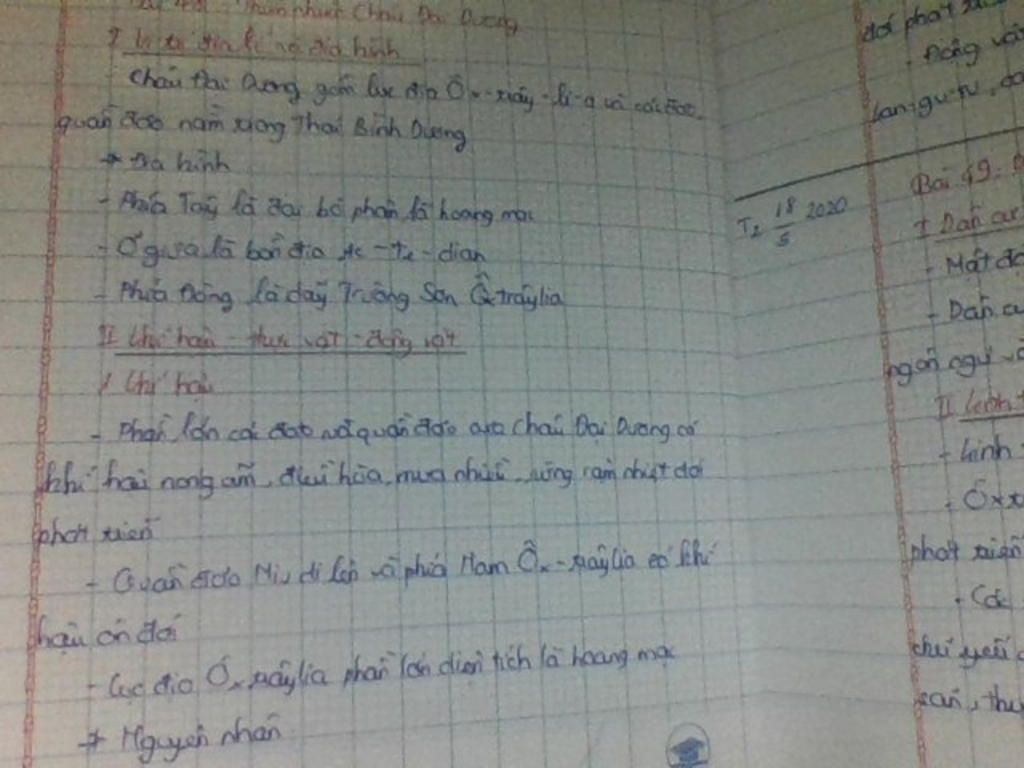 Thiên nhiên Châu Đại Dương
I Vị trí địa lí và địa hình
Châu Đại Dương gồm lục địa Ô-x-trây-li-a và các đảo,
quần đảo nằm trong Thái Bình Dương
* Địa hình
- Phía Tây là đại bộ phận là hoang mạc
- Ở giữa là bồn địa
- Phía Đông là dãy Trường Sơn Ôxtrâylia
II Khí hậu - thực vật - động vật
1 Khí hậu
- Phần lớn các đảo và quần đảo của Châu Đại Dương có
khí hậu nóng ẩm, điều hòa, mưa nhiều, rừng rậm nhiệt đới
phát triển
- Quần đảo Niu di lên và phía Nam Ôx-trâylia có khí
hậu ôn đới
- Lục địa Ôxtrâylia phần lớn diện tích là hoang mạc
* Nguyên nhân
đới phát
- Động vật
can-gu-ru,
T2 18/5 2020
Bài 49:
I Dân cư
- Mật độ
- Dân cư
ngôn ngữ và
II Kinh t
- Kinh
- Ôxt
phát triển
- Các
chủ yếu
sản, thự